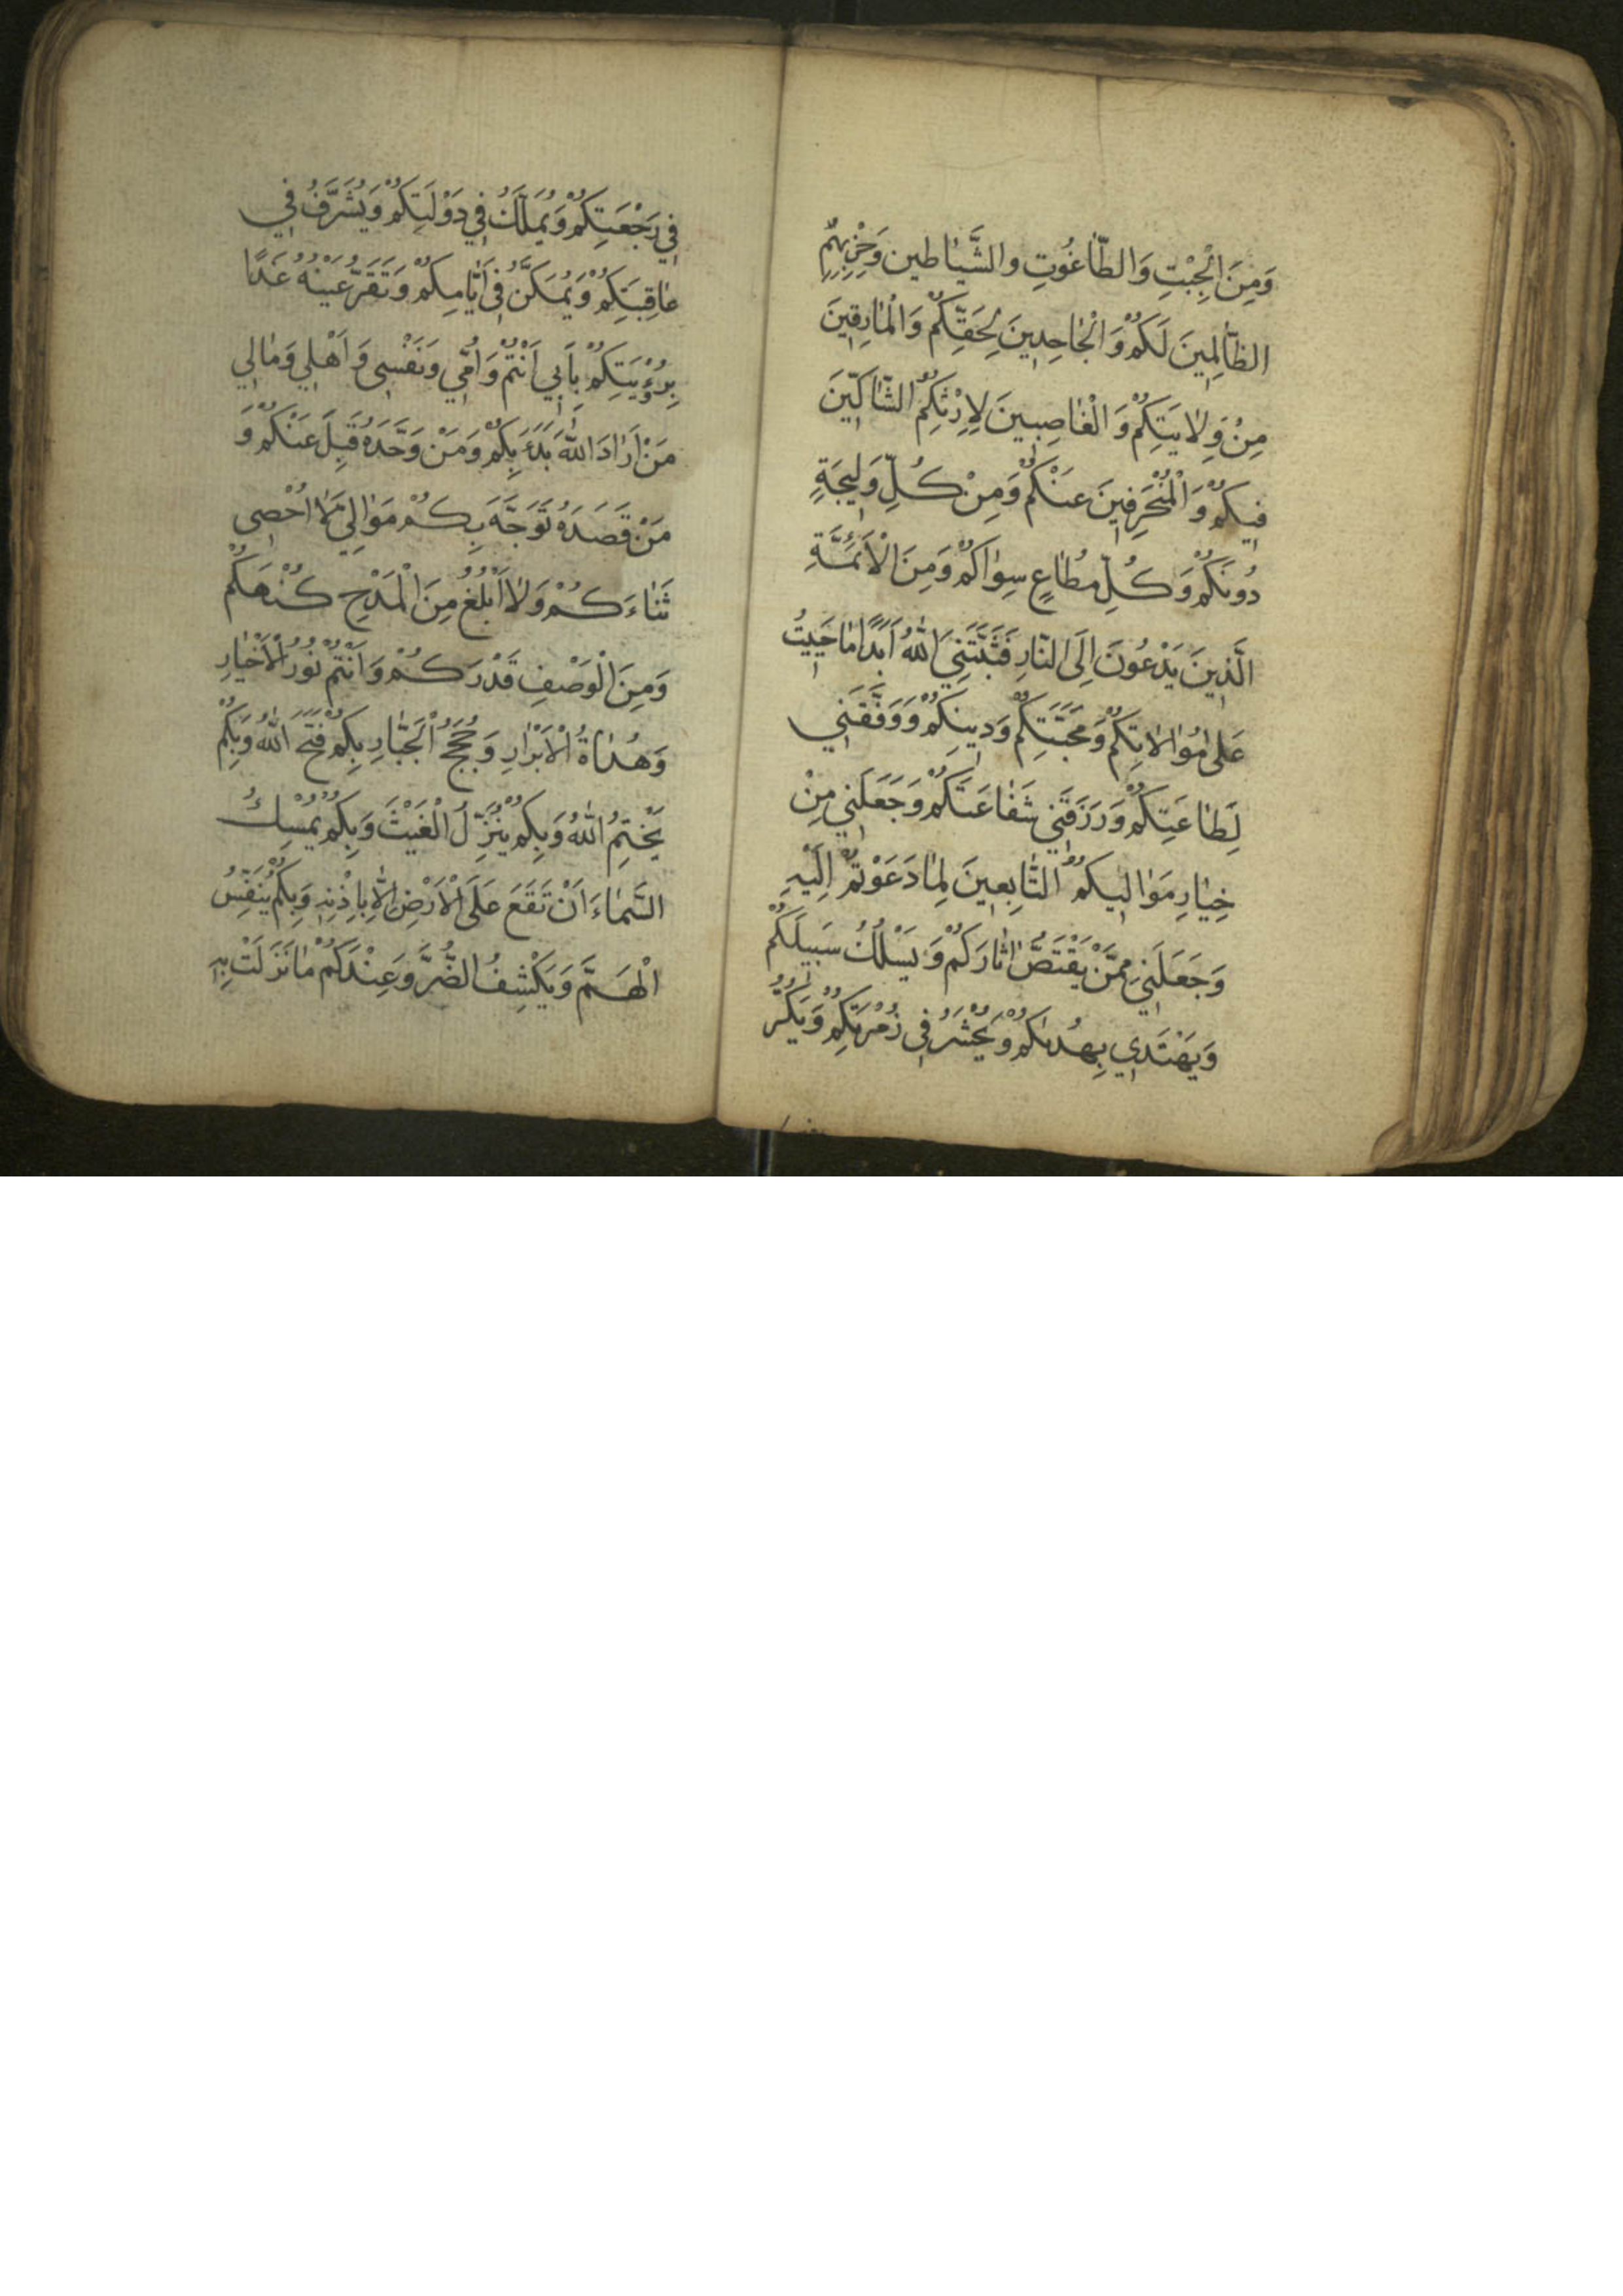 وَمِنَ الْجِبْتِ وَالطَّاغُوتِ والشَّيَاطين وَحِزْبِهِمُ
الظَّالِمِينَ لَكُمْ وَالْجَاحِدِينَ لِحَقِّكُمْ وَالْمَارِقِينَ
مِنْ وِلَايَتِكُمْ وَالْغَاصِبِينَ لِإِرْثِكُمُ الشَّاكِّينَ
فِيكُمْ وَالْمُنْحَرِفِينَ عَنْكُمْ وَمِنْ كُلِّ وَلِيجَةٍ
دُونَكُمْ وَكُلِّ مُطَاعٍ سِوَاكُمْ وَمِنَ الْأَئِمَّةِ
الَّذِينَ يَدْعُونَ إِلَى النَّارِ فَثَبَّتَنِيَ اللهُ أَبَدًا مَا حَيِيتُ
عَلَى مُوَالَاتِكُمْ وَمَحَبَّتِكُمْ وَدِينِكُمْ وَوَفَّقَنِي
لِطَاعَتِكُمْ وَرَزَقَنِي شَفَاعَتَكُمْ وَجَعَلَنِي مِنْ
خِيَارِ مَوَالِيكُمُ التَّابِعِينَ لِمَا دَعَوْتُمْ إِلَيْهِ
وَجَعَلَنِي مِمَّنْ يَقْتَصُّ اثَارَكُمْ وَيَسْلُكُ سَبِيلَكُمْ
وَيَهْتَدِي بِهُدىكُمْ وَيُحْشَرُ فِي زُمْرَتِكُمْ وَيَكُرُّ
فِي رَجْعَتِكُمْ وَيُمَلَّكُ فِي دَوْلَتِكُمْ وَيُشَرَّفُ فِي
عَاقِبَتِكُمْ وَيُمَكَّنُ فِي أَيَّامِكُمْ وَتَقَرُّ عَيْنُهُ غَدًا
بِرُؤْيَتِكُمْ بِأَبِي أَنْتُمْ وَأُمِّي وَنَفْسِي وَأَهْلِي وَمَالِي
مَنْ أَرَادَ اللهَ بَدَءَ بِكُمْ وَمَنْ وَحَّدَهُ قَبِلَ عَنْكُمْ وَ
مَنْ قَصَدَهُ تَوَجَّهَ بِكُمْ مَوَالِيَّ لَا أُحْصِي
ثَنَاءَكُمْ وَلَا أَبْلُغُ مِنَ الْمَدْحِ كُنْهَكُمْ
وَمِنَ الْوَصْفِ قَدْرَكُمْ وَأَنْتُمْ نُورُ الْأَخْيَارِ
وَهُدَاةُ الْأَبْرَارِ وَحُجَجُ الْجَبَّارِ بِكُمْ فَتَحَ اللهُ وَبِكُمْ
يَخْتِمُ اللهُ وَبِكُمْ يُنَزِّلُ الْغَيْثَ وَبِكُمْ يُمْسِكُ
السَّمَاءَ أَنْ تَقَعَ عَلَى الْأَرْضِ إِلَّا بِإِذْنِهِ وَبِكُمْ يُنَفِّسُ
الْهَمَّ وَيَكْشِفُ الضُّرَّ وَعِنْدَكُمْ مَا نَزَلَتْ بِهِ